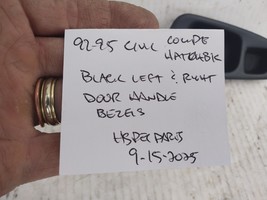 92-95 CIVIC COUPE
HATCHBK
BLACK LEFT & RIGHT
DOOR HANDLE
BEZELS
HSPECPARTS
9-15-2025